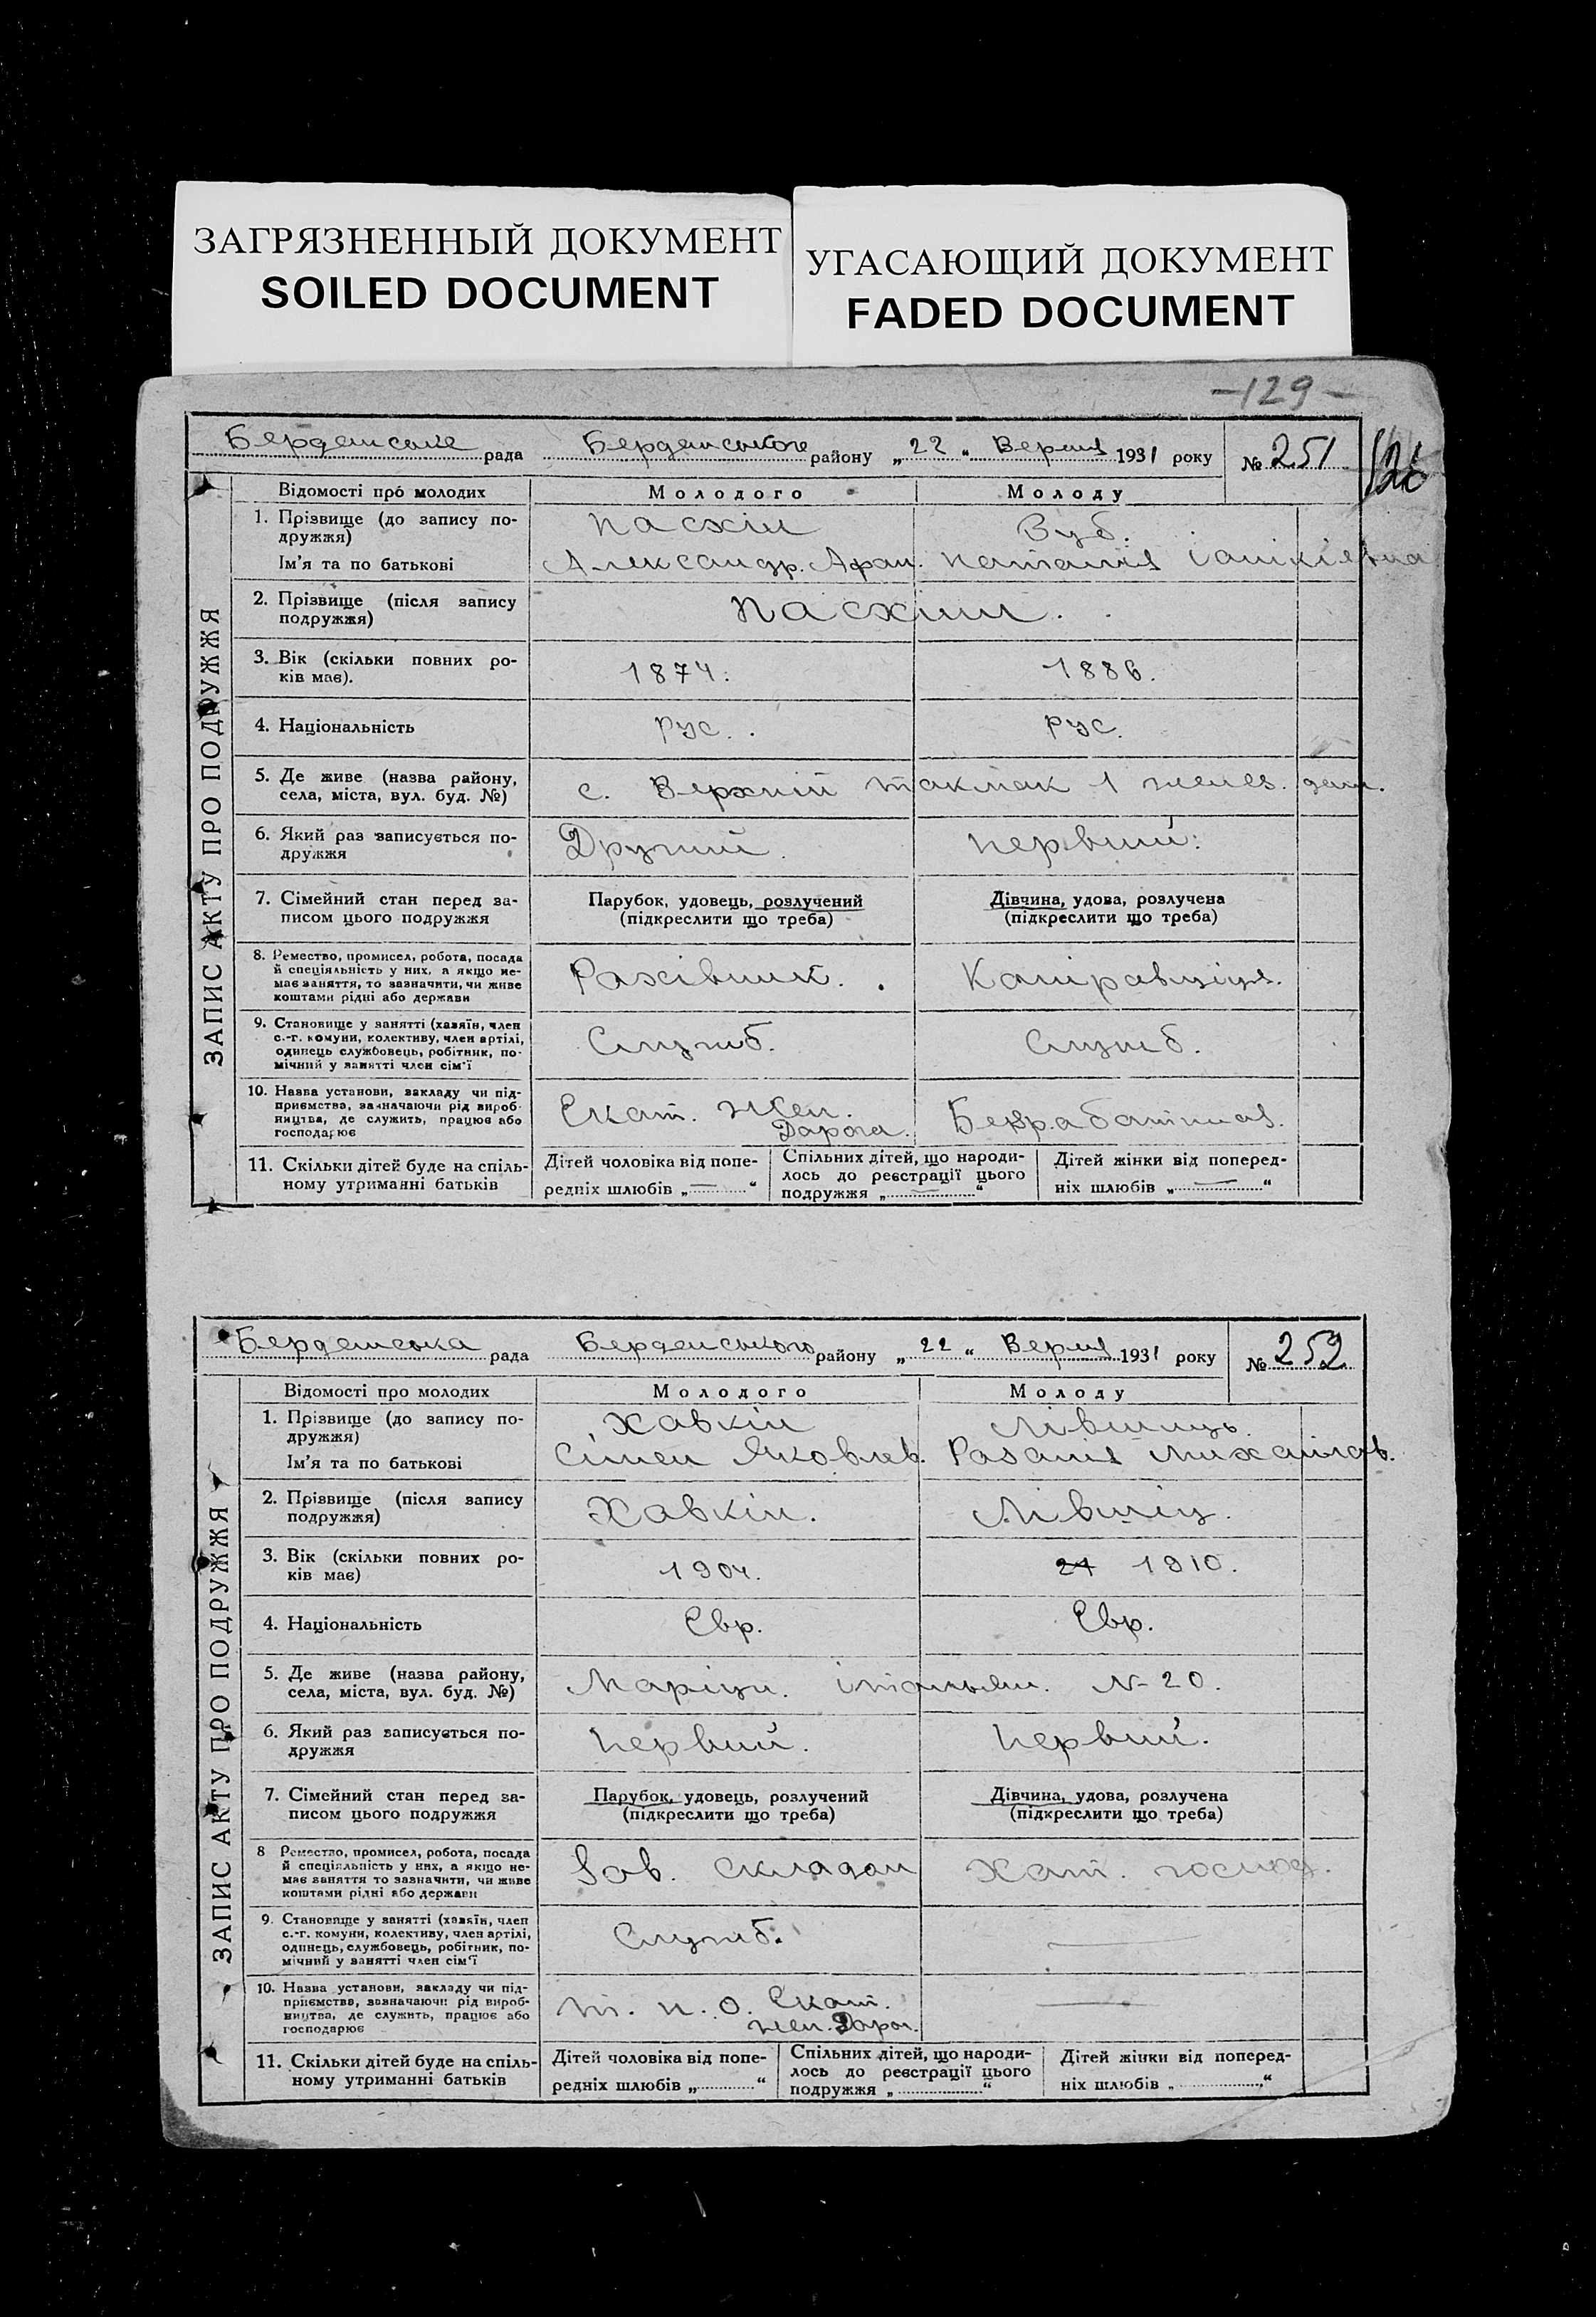 ЗАГРЯЗНЕННЫЙ ДОКУМЕНТ
SOILED DOCUMENT
УГАСАЮЩИЙ ДОКУМЕНТ
FADED DOCUMENT
-129-
рада Бердянського району „22" 1931 року № 251
126
ЗАПИС АКТУ ПРО ПОДРУЖЖЯ
Відомості про молодих Молодого Молоду
1. Прізвище (до запису по- Пасхін
дружжя) Зуб.
Ім'я та по батькові Александр. Афан. Наталия
2. Прізвище (після запису Пасхин.
подружжя)
3. Вік (скільки повних ро- 1874. 1886.
ків має).
4. Національність рус. рус.
5. Де живе (назва району,
села, міста, вул. буд. №) с. Верхній Такмак 1
6. Який раз записується по- Другий. первий.
дружжя
7. Сімейний стан перед за- Парубок, удовець, розлучений Дівчина, удова, розлучена
писом цього подружжя (підкреслити що треба) (підкреслити що треба)
8. Ремество, промисел, робота, посада
й спеціяльність у них, а якщо не-
має заняття, то зазначити, чи живе Рахівник.
коштами рідні або держави
9. Становище у занятті (хазяїн, член
с.-г. комуни, колективу, член артілі, Служб. Служб.
одинець службовець, робітник, по-
мічний у занятті член сім'ї
10. Назва установи, закладу чи під-
приємства, зазначаючи рід вироб- Екат. Жел.
ництва, де служить, працює або Дарога.
господарює
11. Скільки дітей буде на спіль- Дітей чоловіка від попе- Спільних дітей, що народи- Дітей жінки від поперед-
ному утриманні батьків редніх шлюбів „—" лось до реєстрації цього ніх шлюбів „—"
подружжя „—"
Бердянська рада Бердянського району „22" 1931 року № 252
ЗАПИС АКТУ ПРО ПОДРУЖЖЯ
Відомості про молодих Молодого Молоду
1. Прізвище (до запису по- Хавкін Лівшиць.
дружжя)
Ім'я та по батькові Сімен Яковлев. Розалия Михайлов.
2. Прізвище (після запису Хавкін. Лівшіц.
подружжя)
3. Вік (скільки повних ро- 1904. 21 1910.
ків має)
4. Національність Евр. Евр.
5. Де живе (назва району,
села, міста, вул. буд. №) Маріуп. італьян. N-20.
6. Який раз записується по- первий. первий.
дружжя
7. Сімейний стан перед за- Парубок, удовець, розлучений Дівчина, удова, розлучена
писом цього подружжя (підкреслити що треба) (підкреслити що треба)
8 Ремество, промисел, робота, посада
й спеціяльність у них, а якщо не- Зав. складом Хат. господ.
має заняття то зазначити, чи живе
коштами рідні або держави
9. Становище у занятті (хазяїн, член
с.-г. комуни, колективу, член артілі, Служб. —
одинець, службовець, робітник, по-
мічний у занятті член сім'ї
10. Назва установи, закладу чи під-
приємства, зазначаючи рід вироб- т. п. о. Екат. —
ництва, де служить, працює або жел. Дарог.
господарює
11. Скільки дітей буде на спіль- Дітей чоловіка від попе- Спільних дітей, що народи- Дітей жінки від поперед-
ному утриманні батьків редніх шлюбів „" лось до реєстрації цього ніх шлюбів „"
подружжя „"